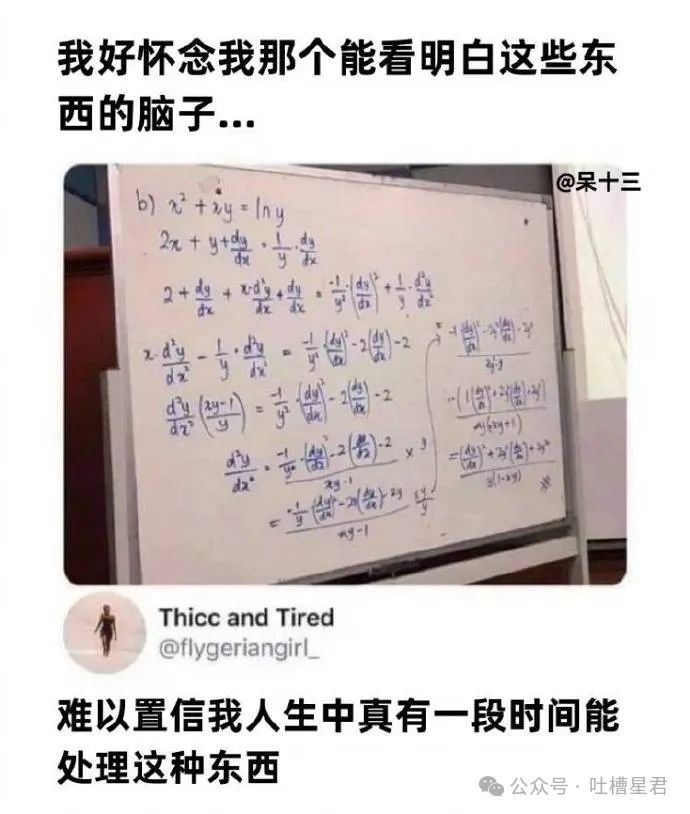 我好怀念我那个能看明白这些东
西的脑子...
@呆十三
b) x² + xy = ln y
2x + y + x dy/dx = 1/y · dy/dx
2 + dy/dx + x·d²y/dx² + dy/dx = -1/y² · (dy/dx)² + 1/y · d²y/dx²
x · d²y/dx² - 1/y · d²y/dx² = -1/y² (dy/dx)² - 2(dy/dx) - 2
d²y/dx² (xy-1 / y) = -1/y² · (dy/dx)² - 2(dy/dx) - 2
Thicc and Tired
@flygeriangirl_
难以置信我人生中真有一段时间能
处理这种东西
公众号 · 吐槽星君